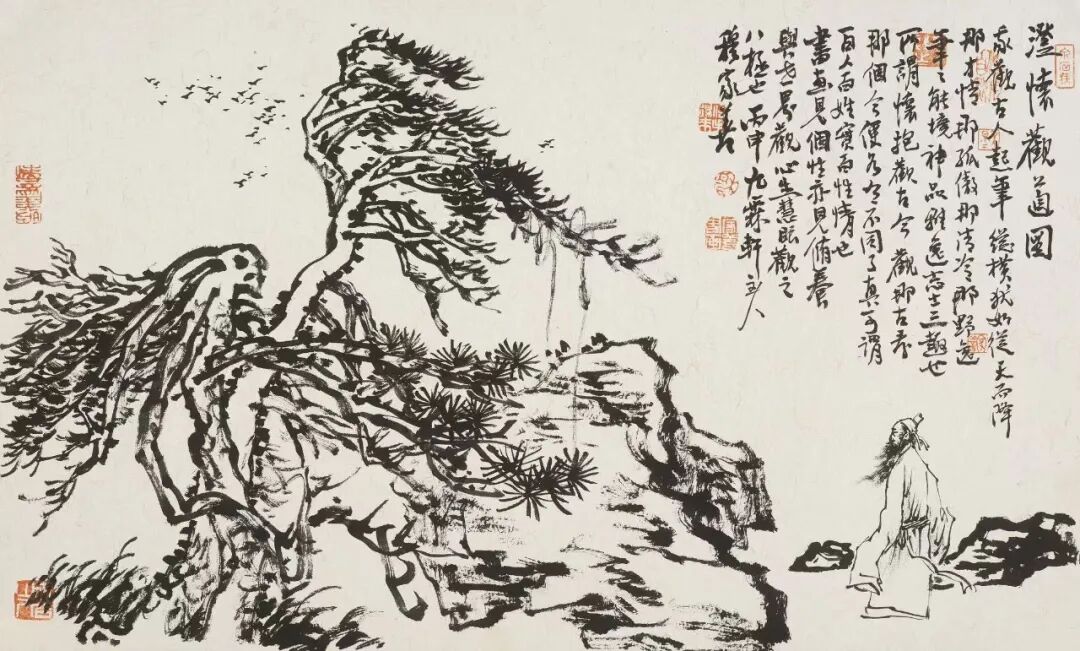 澄懷觀道図
我觀古人起筆縱橫犹如從天而降
那才情那孤傲那清冷那野逸
筆筆能境神品雅逸高士三趣也
所謂懷抱觀古今觀那古and
那個今便各各不同了真可謂
百人百姓實百性情也
書畫見個性亦見脩養
與者一景觀心生慧眼觀之
八極也丙申九霖軒主人